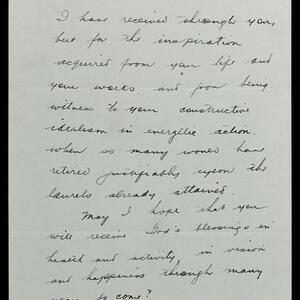 I have received through you,
but for the inspiration
acquired from your life and
your works, and from being
witness to your constructive
idealism in energetic action,
when so many would have
retired justifiably upon the
laurels already attained.
May I hope that you
will receive God's blessings in
health and activity, in vision
and happiness through many
years to come?